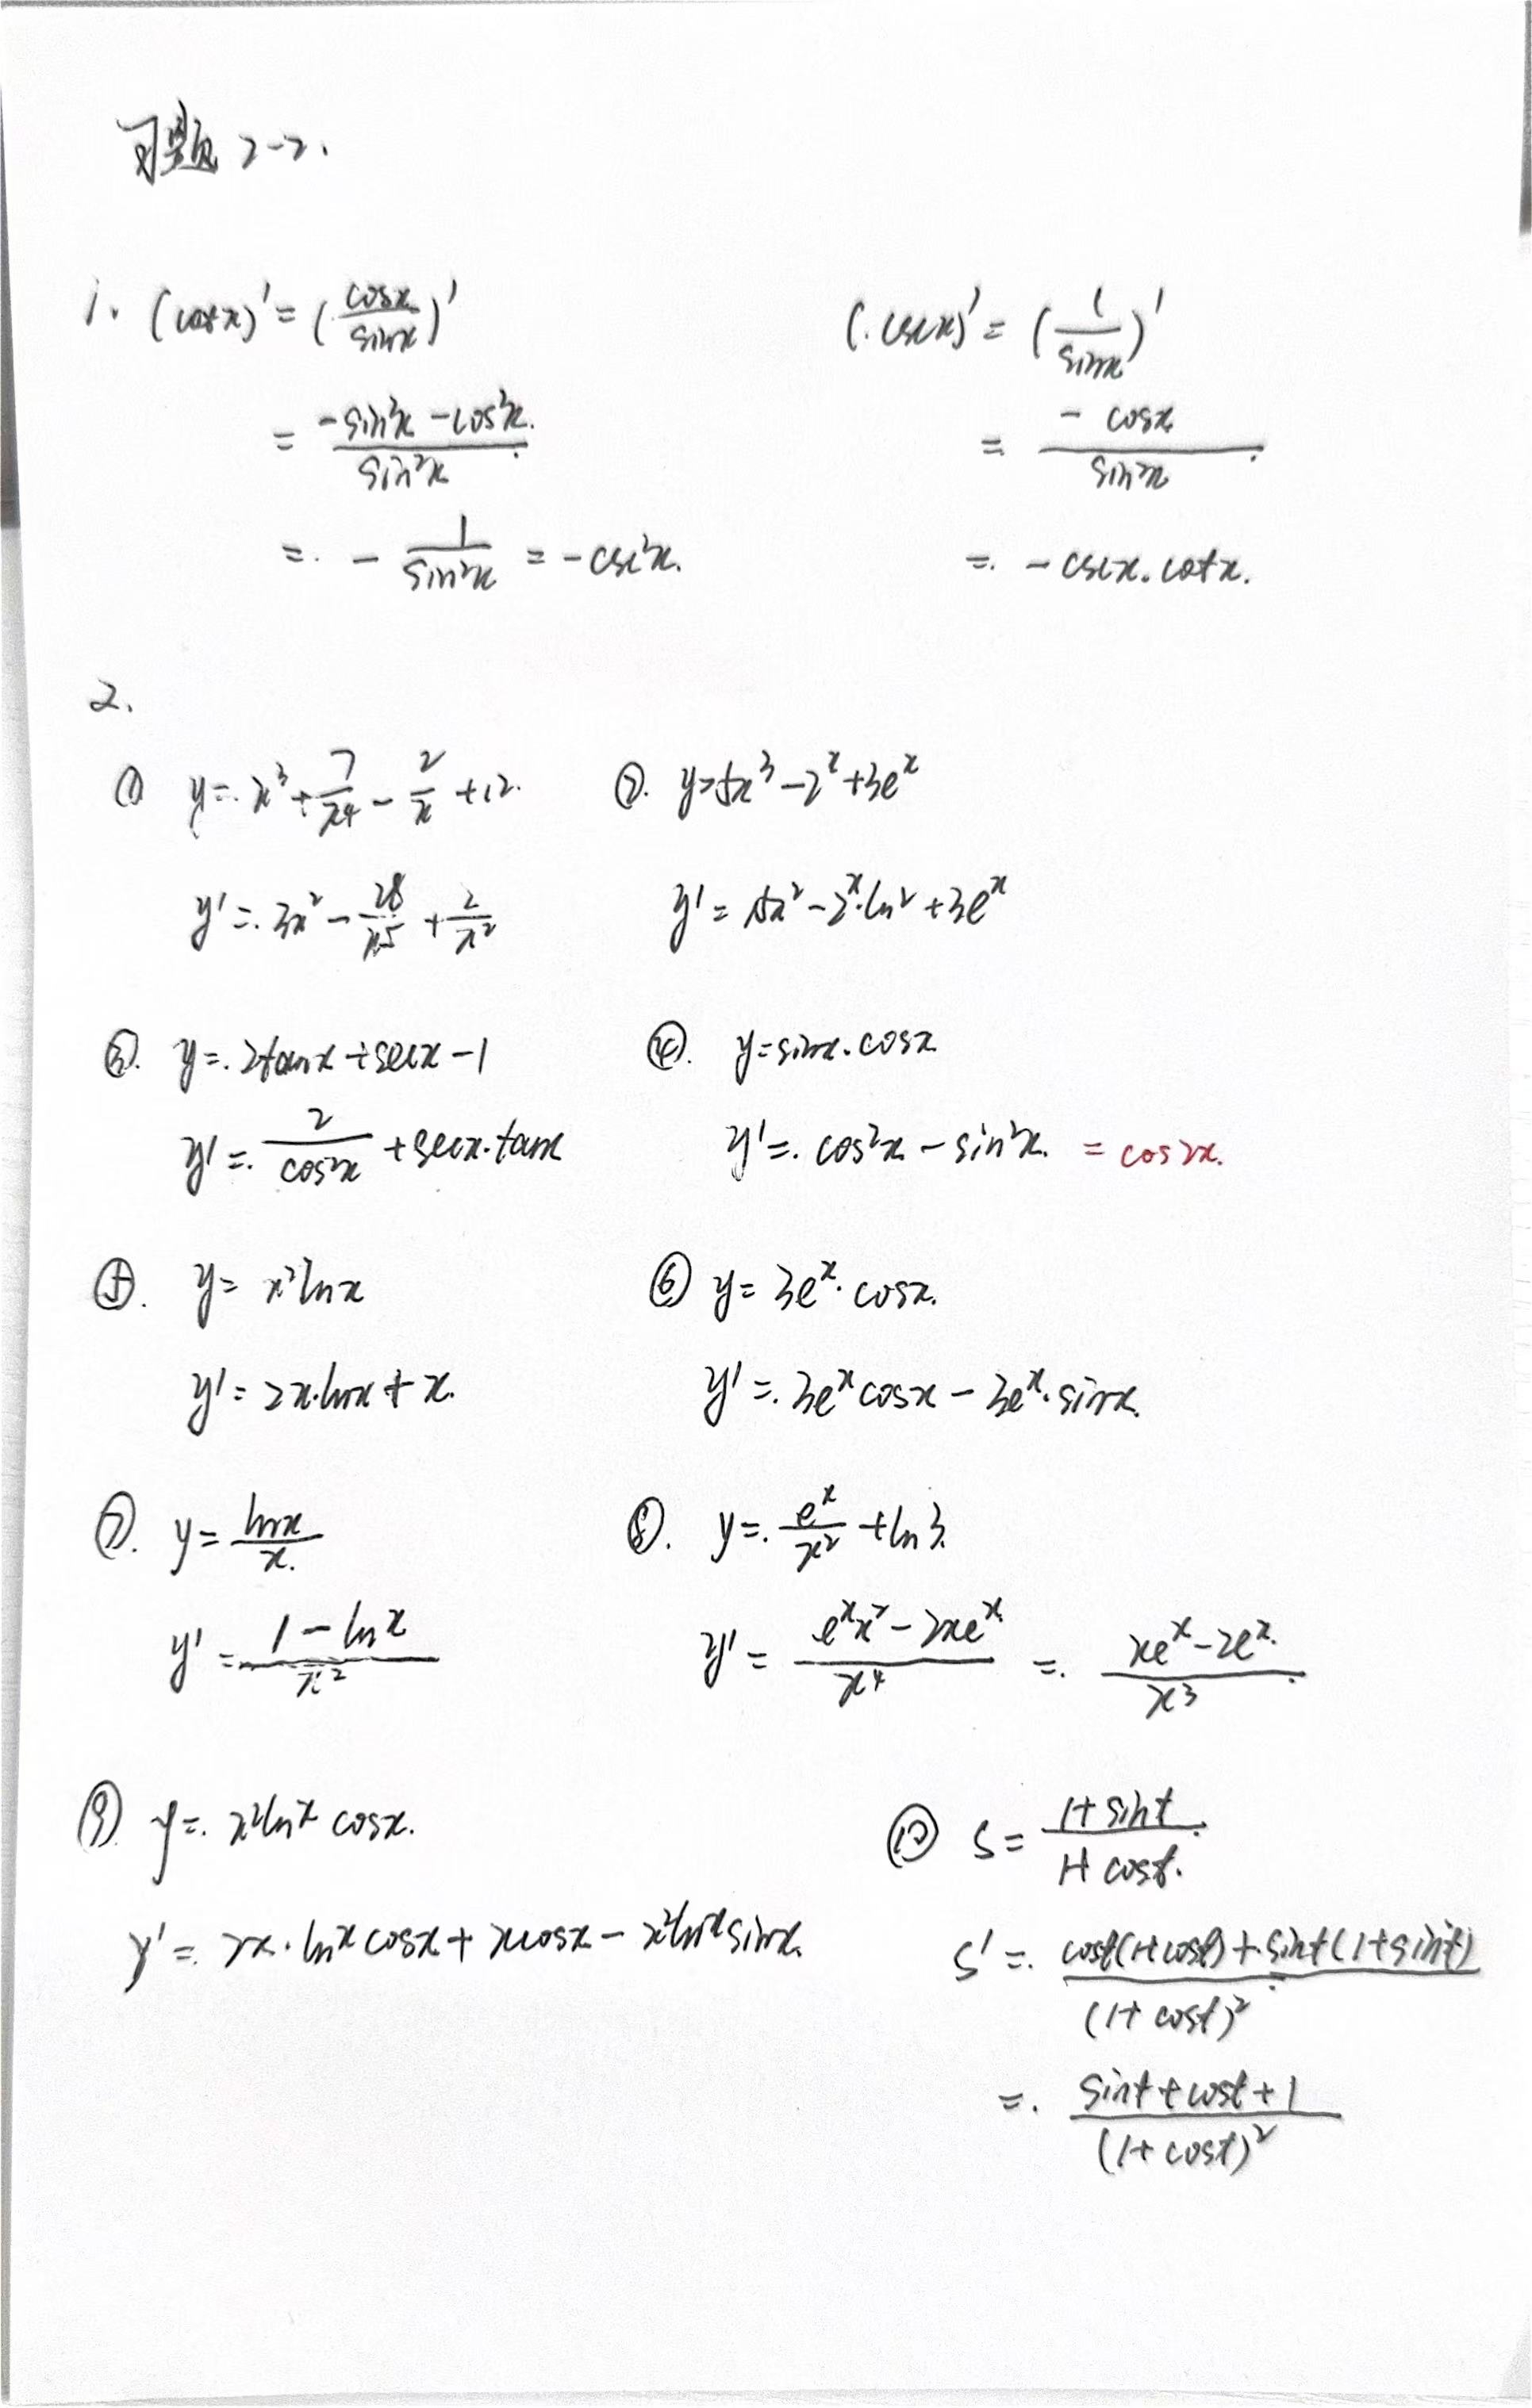 习题 2-2.
1. (cotx)' = (cosx/sinx)'
= (-sin²x - cos²x)/sin²x
= - 1/sin²x = -csc²x.
(cscx)' = (1/sinx)'
= - cosx/sin²x
= -cscx·cotx.
2.
① y = x³ + 7/x⁴ - 2/x + 12.
y' = 3x² - 28/x⁵ + 2/x²
②. y = 5x³ - 2ˣ + 3eˣ
y' = 15x² - 2ˣ·ln2 + 3eˣ
③. y = 2tanx + secx - 1
y' = 2/cos²x + secx·tanx
④. y = sinx·cosx
y' = cos²x - sin²x. = cos2x.
⑤. y = x²lnx
y' = 2x·lnx + x.
⑥ y = 3eˣ·cosx.
y' = 3eˣcosx - 3eˣ·sinx.
⑦. y = lnx/x.
y' = (1 - lnx)/x²
⑧. y = eˣ/x² + ln3.
y' = (eˣx² - 2xeˣ)/x⁴ = (xeˣ - 2eˣ)/x³
⑨. y = x²lnx cosx.
y' = 2x·lnx cosx + xcosx - x²lnx sinx.
⑩ S = (1+sint)/(1+cost).
S' = (cost(1+cost) + sint(1+sint))/(1+cost)²
= (sint + cost + 1)/(1+cost)²